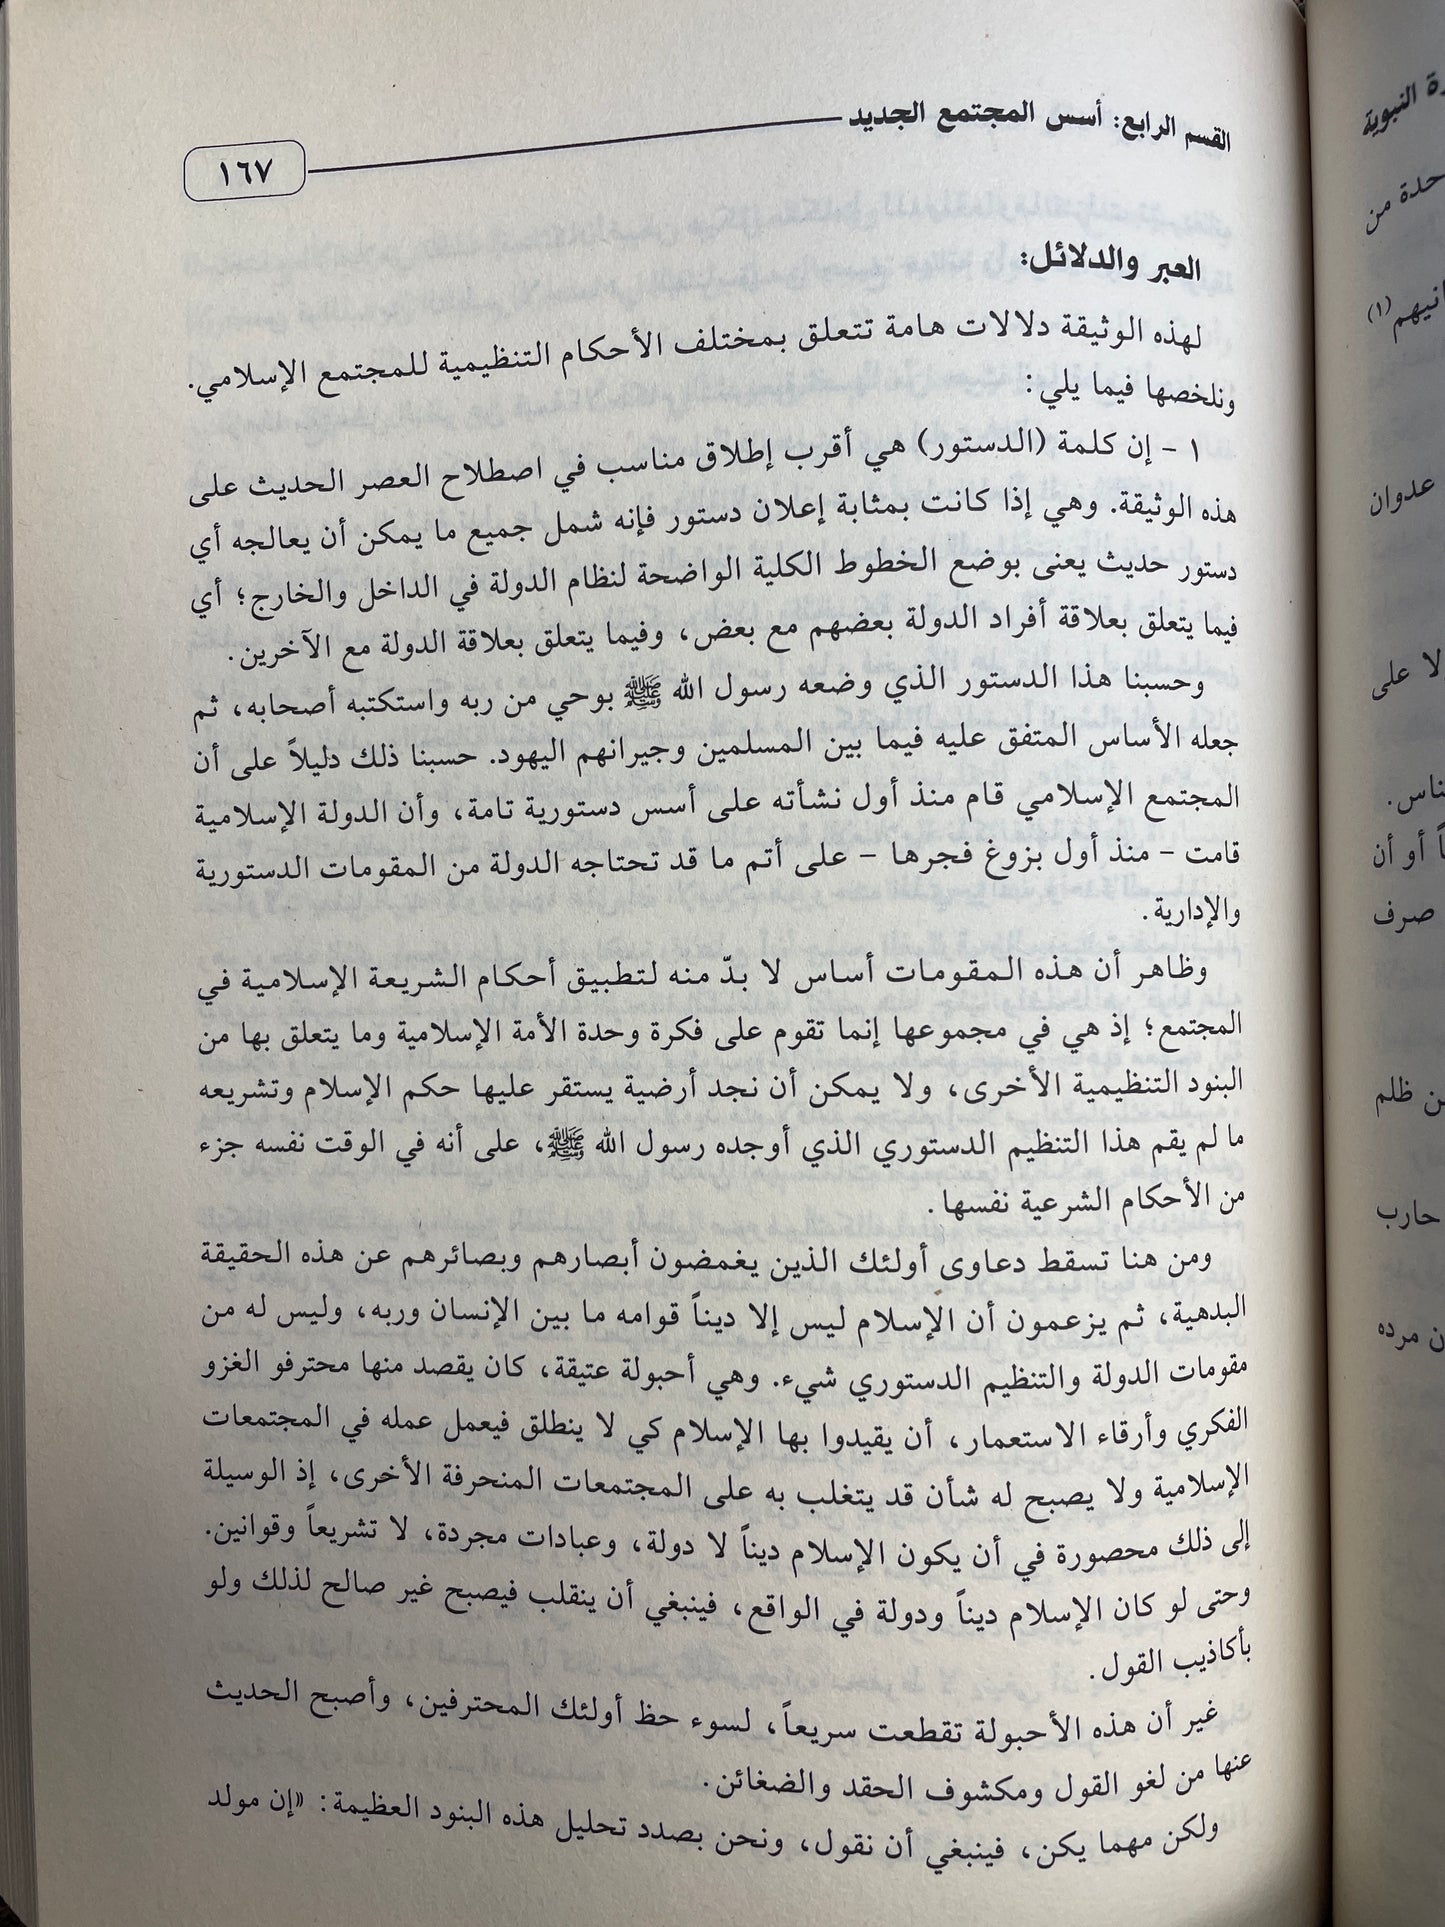 القسم الرابع: أسس المجتمع الجديد
١٦٧
العبر والدلائل:
لهذه الوثيقة دلالات هامة تتعلق بمختلف الأحكام التنظيمية للمجتمع الإسلامي.
ونلخصها فيما يلي:
١ - إن كلمة (الدستور) هي أقرب إطلاق مناسب في اصطلاح العصر الحديث على
هذه الوثيقة. وهي إذا كانت بمثابة إعلان دستور فإنه شمل جميع ما يمكن أن يعالجه أي
دستور حديث يعنى بوضع الخطوط الكلية الواضحة لنظام الدولة في الداخل والخارج؛ أي
فيما يتعلق بعلاقة أفراد الدولة بعضهم مع بعض، وفيما يتعلق بعلاقة الدولة مع الآخرين.
وحسبنا هذا الدستور الذي وضعه رسول الله ﷺ بوحي من ربه واستكتبه أصحابه، ثم
جعله الأساس المتفق عليه فيما بين المسلمين وجيرانهم اليهود. حسبنا ذلك دليلاً على أن
المجتمع الإسلامي قام منذ أول نشأته على أسس دستورية تامة، وأن الدولة الإسلامية
قامت - منذ أول بزوغ فجرها - على أتم ما قد تحتاجه الدولة من المقومات الدستورية
والإدارية.
وظاهر أن هذه المقومات أساس لا بدّ منه لتطبيق أحكام الشريعة الإسلامية في
المجتمع؛ إذ هي في مجموعها إنما تقوم على فكرة وحدة الأمة الإسلامية وما يتعلق بها من
البنود التنظيمية الأخرى، ولا يمكن أن نجد أرضية يستقر عليها حكم الإسلام وتشريعه
ما لم يقم هذا التنظيم الدستوري الذي أوجده رسول الله ﷺ، على أنه في الوقت نفسه جزء
من الأحكام الشرعية نفسها.
ومن هنا تسقط دعاوى أولئك الذين يغمضون أبصارهم وبصائرهم عن هذه الحقيقة
البدهية، ثم يزعمون أن الإسلام ليس إلا ديناً قوامه ما بين الإنسان وربه، وليس له من
مقومات الدولة والتنظيم الدستوري شيء. وهي أحبولة عتيقة، كان يقصد منها محترفو الغزو
الفكري وأرقاء الاستعمار، أن يقيدوا بها الإسلام كي لا ينطلق فيعمل عمله في المجتمعات
الإسلامية ولا يصبح له شأن قد يتغلب به على المجتمعات المنحرفة الأخرى، إذ الوسيلة
إلى ذلك محصورة في أن يكون الإسلام ديناً لا دولة، وعبادات مجردة، لا تشريعاً وقوانين.
وحتى لو كان الإسلام ديناً ودولة في الواقع، فينبغي أن ينقلب فيصبح غير صالح لذلك ولو
بأكاذيب القول.
غير أن هذه الأحبولة تقطعت سريعاً، لسوء حظ أولئك المحترفين، وأصبح الحديث
عنها من لغو القول ومكشوف الحقد والضغائن.
ولكن مهما يكن، فينبغي أن نقول، ونحن بصدد تحليل هذه البنود العظيمة: «إن مولد
النبوية
حدة من
انيهم(١)
عدوان
لا على
ناس.
أو أن
صرف
ظلم
حارب
مرده